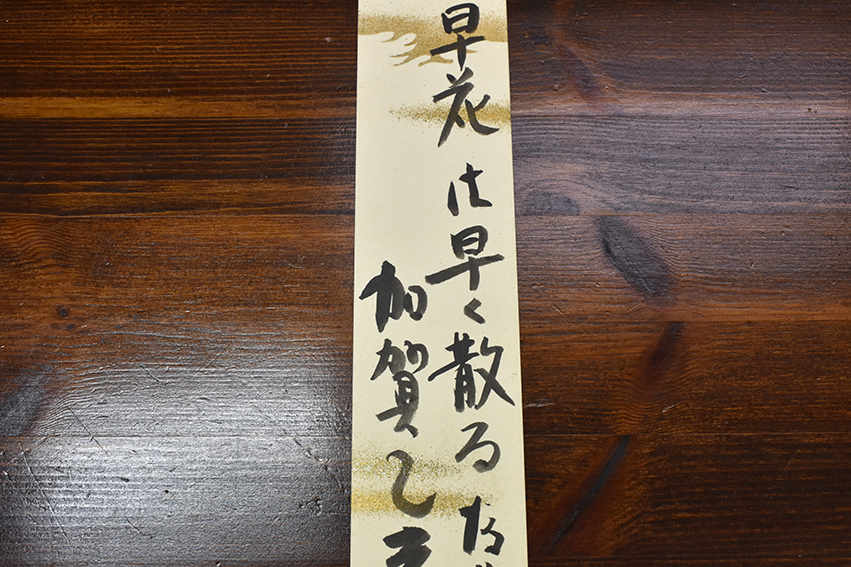 早花は早く散るな
加賀乙